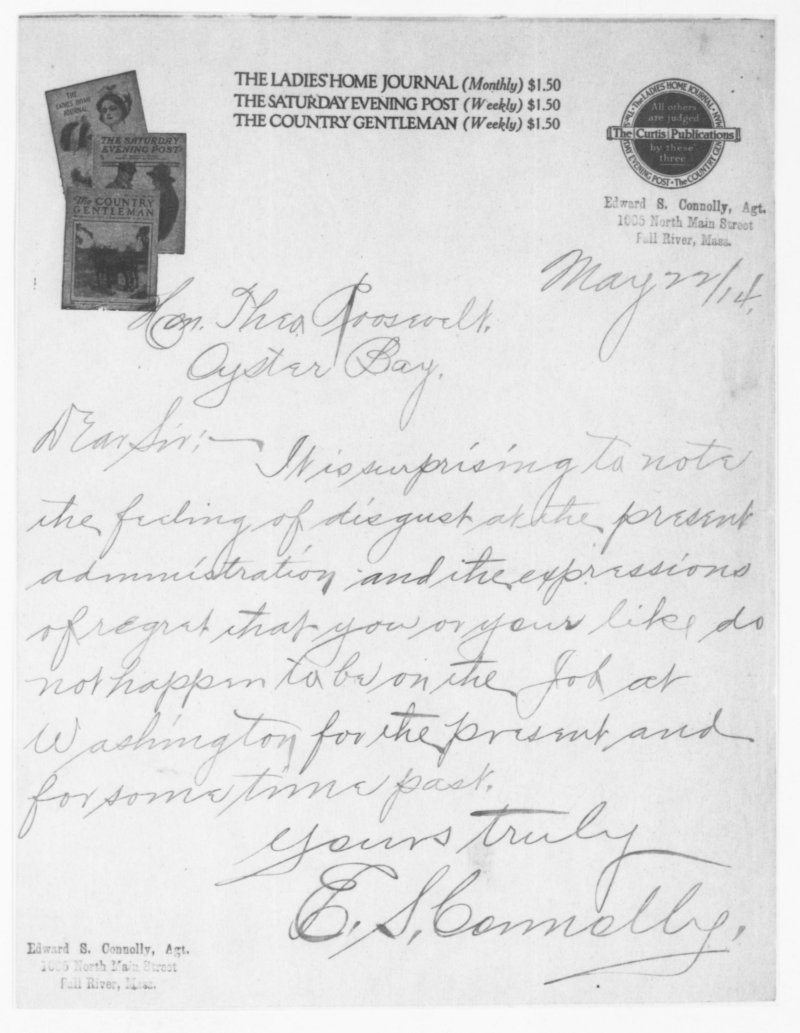 THE LADIES' HOME JOURNAL (Monthly) $1.50
THE SATURDAY EVENING POST (Weekly) $1.50
THE COUNTRY GENTLEMAN (Weekly) $1.50
THE
LADIES HOME
JOURNAL
THE SATURDAY
EVENING POST
The COUNTRY
GENTLEMAN
The LADIES HOME JOURNAL
All others
are judged
The Curtis Publications
by these
three
EVENING POST • The COUNTRY
Edward S. Connolly, Agt.
North Main Street
Fall River, Mass.
May 22/14.
Hon. Theo Roosevelt.
Oyster Bay.
Dear Sir:—
It is surprising to note
the feeling of disgust at the present
administration and the expressions
of regret that you or your like do
not happen to be on the Job at
Washington for the present and
for some time past.
Yours truly
E. S. Connolly.
Edward S. Connolly, Agt.
North Main Street
Fall River, Mass.